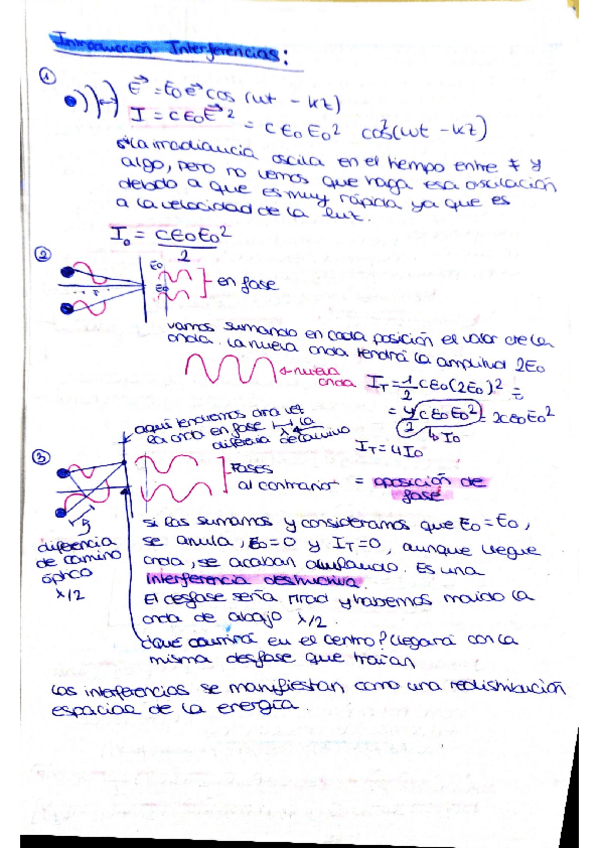 Introducción Interferencias:
① E⃗ = E₀ e⃗ cos (ωt - kz)
I = cε₀E⃗² = cε₀E₀² cos²(ωt - kz)
la irradiancia oscila en el tiempo entre y
algo, pero no vemos que haga esa oscilación
debido a que es muy rápida ya que es
a la velocidad de la luz.
I₀ = cε₀E₀² / 2
②
E₀
E₀
en fase
vamos sumando en cada posición el valor de la
onda. La nueva onda tendrá la amplitud 2E₀
nueva onda
I_T = 1/2 cε₀(2E₀)² =
= 4 cε₀E₀² / 2 = 2cε₀E₀²
4I₀
I_T = 4I₀
aquí tendremos otra vez
la onda en fase la
diferencia de camino
③
Fases
al contrario = oposición de
fase
diferencia
de camino
óptico
λ/2
si las sumamos y consideramos que E₀ = E₀,
se anula, E₀=0 y I_T=0, aunque llegue
onda, se acaban anulando. Es una
interferencia destructiva
El desfase sería π rad y habremos movido la
onda de abajo λ/2.
¿Qué ocurrirá en el centro? llegará con la
misma desfase que traían
Las interferencias se manifiestan como una redistribución
espacial de la energía.